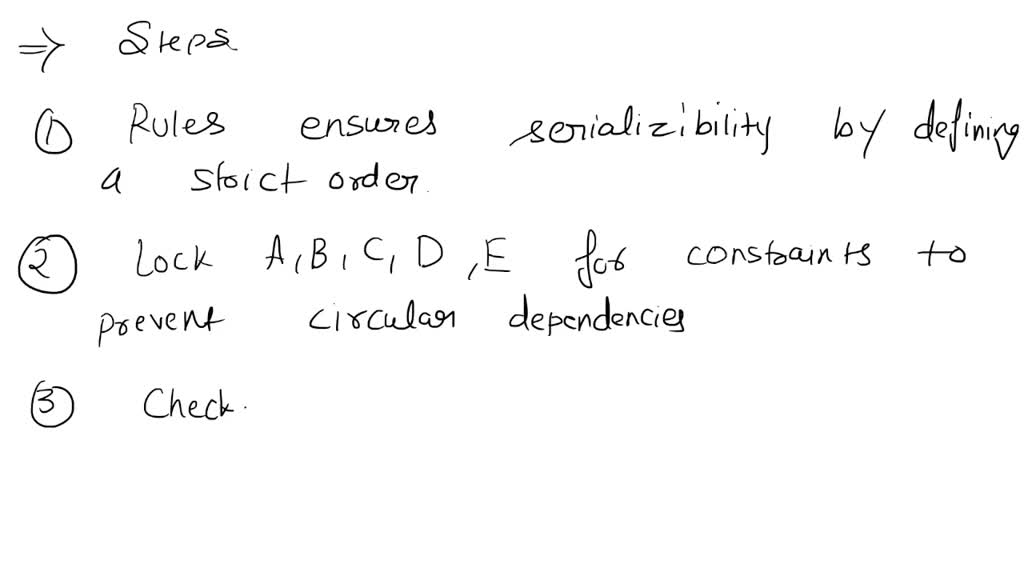 ⇒ Steps
① Rules ensures serializibility by defining
a strict order.
② Lock A, B, C, D, E for constraints to
prevent circular dependencies
③ Check.